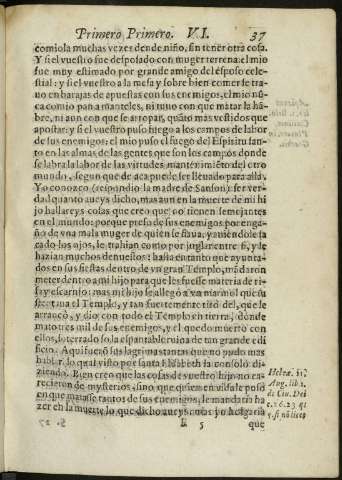 Primero Primero. VI. 37
comiola muchas vezes dende niño, sin tener otra cosa.
Y si el vuestro fue desposado con muger terrena: el mio
fue muy estimado por grande amigo del esposo celes-
tial: y si el vuestro a la mesa y sobre bien comer se tra-
uo en barajas de apuestas con sus enemigos, el mio nũ-
ca comio pan a manteles, ni tuuo con que matar la hã-
bre, ni aun con que se arropar, quãto mas vestidos que
apostar: y si el vuestro puso fuego a los campos de labor
de sus enemigos: el mio puso el fuego del Espiritu san-
to en las almas de las gentes que son los campos donde
se labra la labor de las virtudes: mantenimiẽto del otro
mundo, segun que de aca puede ser lleuado para alla.
Yo conozco (respondio la madre de Sanson) ser ver-
dad quanto aueys dicho, mas aun en la muerte de mi hi
jo hallareys cosas que creo que no tienen semejantes
en el mundo: porque preso de sus enemigos por enga-
ño de vna mala muger de quien se fiaua, y auiendole sa
cado los ojos, le trahian como por juglar entre si, y le
hazian muchos denuestos: hasta en tanto que ayunta-
dos en sus fiestas dentro de vn gran Templo, mãdaron
meter dentro a mi hijo para que les fuesse materia de ri-
sa y escarnio: mas mi hijo se allegò a vn marmol que su
stentaua el Templo, y tan fuertemente tirò del, que le
arrancò, y dio con todo el Templo en tierra, donde
mato tres mil de sus enemigos, y el quedo muerto con
ellos, soterrado so la espantable ruina de tan grande edi
ficio. Aqui fueron sus lagrimas tantas que no pudo mas
hablar, lo qual visto por santa Elisabeth la consolò di-
ziendo. Bien creo que las cosas de vuestro hijo no ca-
recieron de mysterios, sino que quien en vida le puso
en que matasse tantos de sus enemigos, le mandaria ha
zer en la muerte lo que dicho aueys: mas yo holgaria
Hebræ. 11.
Aug. lib. 1.
de Ciu. Dei
E 5 que